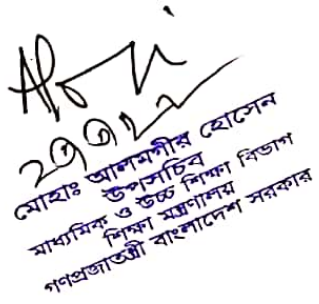 মোহাঃ আলমগীর হোসেন
উপসচিব
মাধ্যমিক ও উচ্চ শিক্ষা বিভাগ
শিক্ষা মন্ত্রণালয়
গণপ্রজাতন্ত্রী বাংলাদেশ সরকার